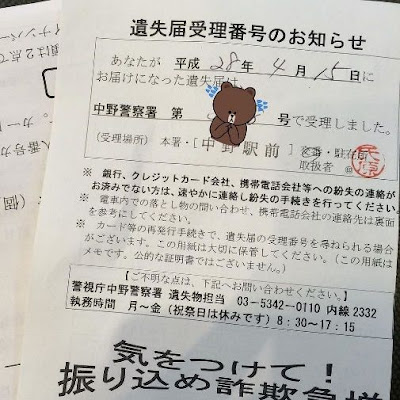 遺失届受理番号のお知らせ
あなたが 平成 28年 4月 15日に
お届けになった遺失届は、
中野警察署 第 号で受理しました。
(受理場所) 本署・[中野駅前] 交番・駐在所
取扱者
※ 銀行、クレジットカード会社、携帯電話会社等への紛失の連絡が
お済みでない方は、速やかに連絡し紛失の手続きを行ってください。
※ 電車内での落とし物の問い合わせ、携帯電話会社の連絡先は裏面
を参考にしてください。
※ カード等の再発行手続きで、遺失届の受理番号を尋ねられる場合
がございます。この用紙は大切に保管してください。(この用紙は
メモです。公的な証明書ではございません。)
【ご不明な点は、下記へお問い合わせください。】
警視庁中野警察署 遺失物担当 03-5342-0110 内線 2332
執務時間 月~金(祝祭日は休みです)8:30~17:15
気をつけて!
振り込め詐欺急増